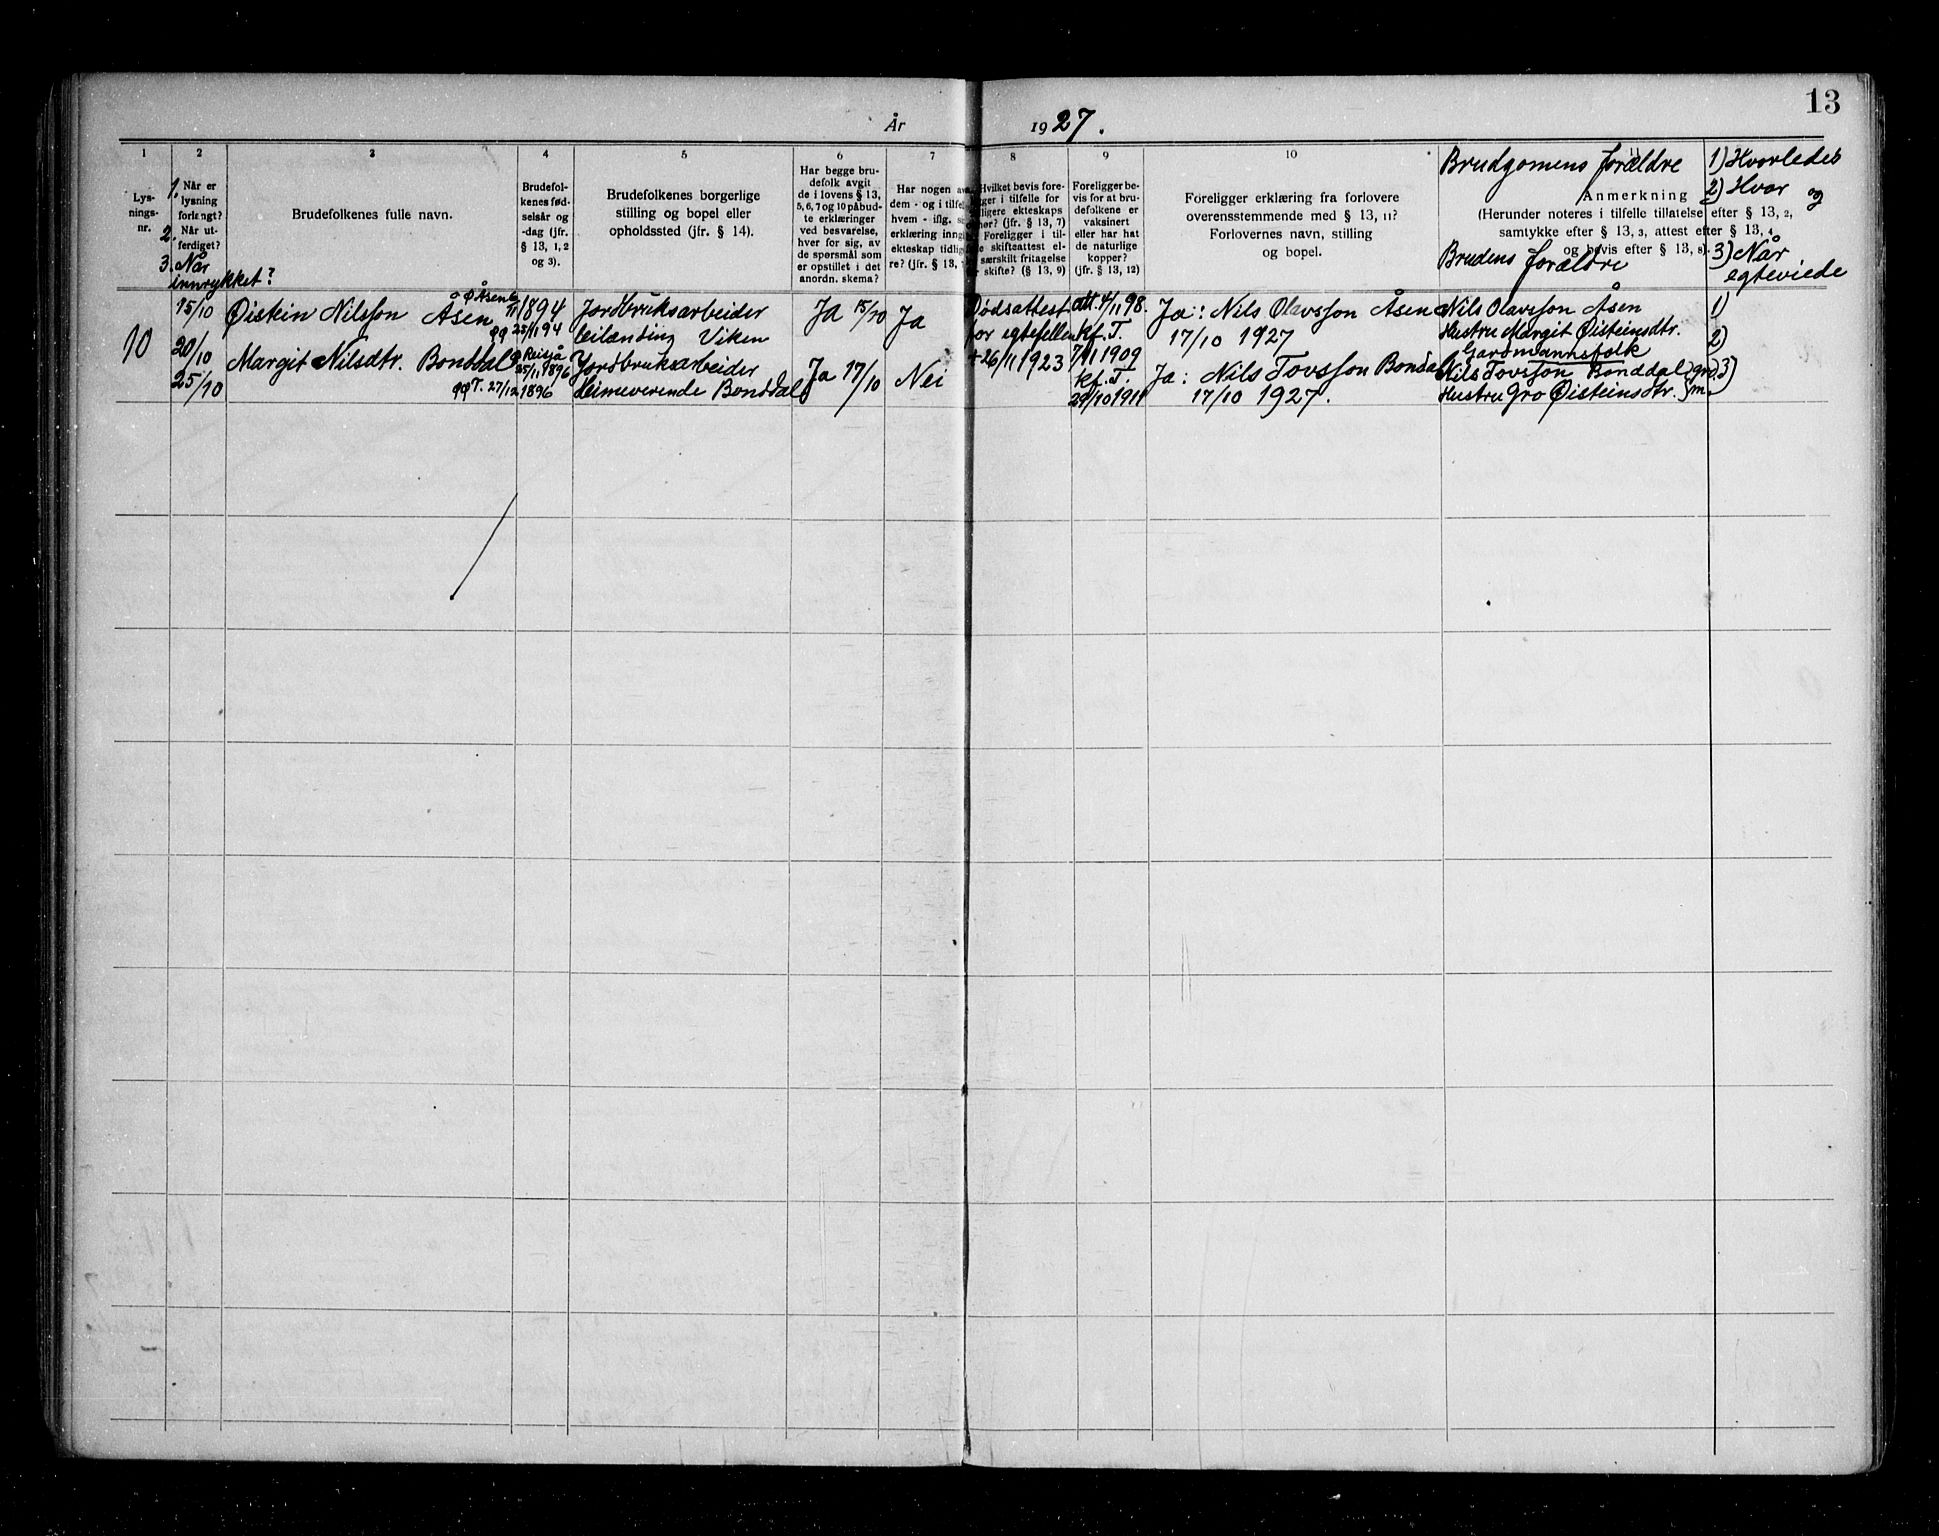 13
År 1927.
1
Lys-
nings-
nr.
2
1. Når er
lysning
forlangt?
2. Når ut-
ferdiget?
3. Når
innrykket?
3
Brudefolkenes fulle navn.
4
Brudefol-
kenes fød-
selsår og
-dag (jfr.
§ 13, 1, 2
og 3).
5
Brudefolkenes borgerlige
stilling og bopel eller
opholdssted (jfr. § 14).
6
Har begge bru-
defolk avgit
de i lovens § 13,
5, 6, 7 og 10 påbud-
te erklæringer
ved besvarelse,
hver for sig, av
de spørsmål som
er opstillet i det
anordn. skema?
7
Har nogen av
dem - og i tilfel
hvem - iflg. s
erklæring inngå
ekteskap tidlig
re? (jfr. § 13,
8
Hvilket bevis fore-
ligger i tilfelle for
tidligere ekteskaps
(jfr. § 13, 7)
Foreligger i til-
felle skifteattest el-
særskilt fritagelse
skifte? (§ 13, 9)
9
Foreligger be-
vis for at bru-
defolkene er
vaksinert
eller har hat
de naturlige
kopper?
(jfr. § 13, 12)
10
Foreligger erklæring fra forlovere
overensstemmende med § 13, 11?
Forlovernes navn, stilling
og bopel.
11
Brudgomens forældre
Anmerkning
(Herunder noteres i tilfelle tillatelse efter § 13, 2,
samtykke efter § 13, 3, attest efter § 13, 4
og bevis efter § 13, 8).
Brudens forældre
1) Hvorledes
2) Hvor og
3) Når
egteviede
10
15/10
20/10
25/10
Øistein Nilsson Åsen
Margit Nilsdtr. Bonddal
Åsen 6/11 1894
25/11 94
Reisjå
25/11 1896
T. 27/12 1896
Jordbruksarbeider
leilending Viken
Jordbruksarbeider
Heimeverende Bonddal
Ja 15/10
Ja 17/10
Ja
Nei
Dødsattest
for egtefellen
+ 26/11 1923
att. 4/11 98.
kf. T.
7/11 1909
kf. T.
29/10 1911
Ja: Nils Olavsson Åsen
17/10 1927
Ja: Nils Tovsson Bondal
17/10 1927.
Nils Olavsson Åsen
Hustru Margit Øisteinsdtr.
Gardmannsfolk
Nils Tovsson Bonddal } grd.
Hustru Gro Øisteinsdtr. } m.
1)
2)
3)